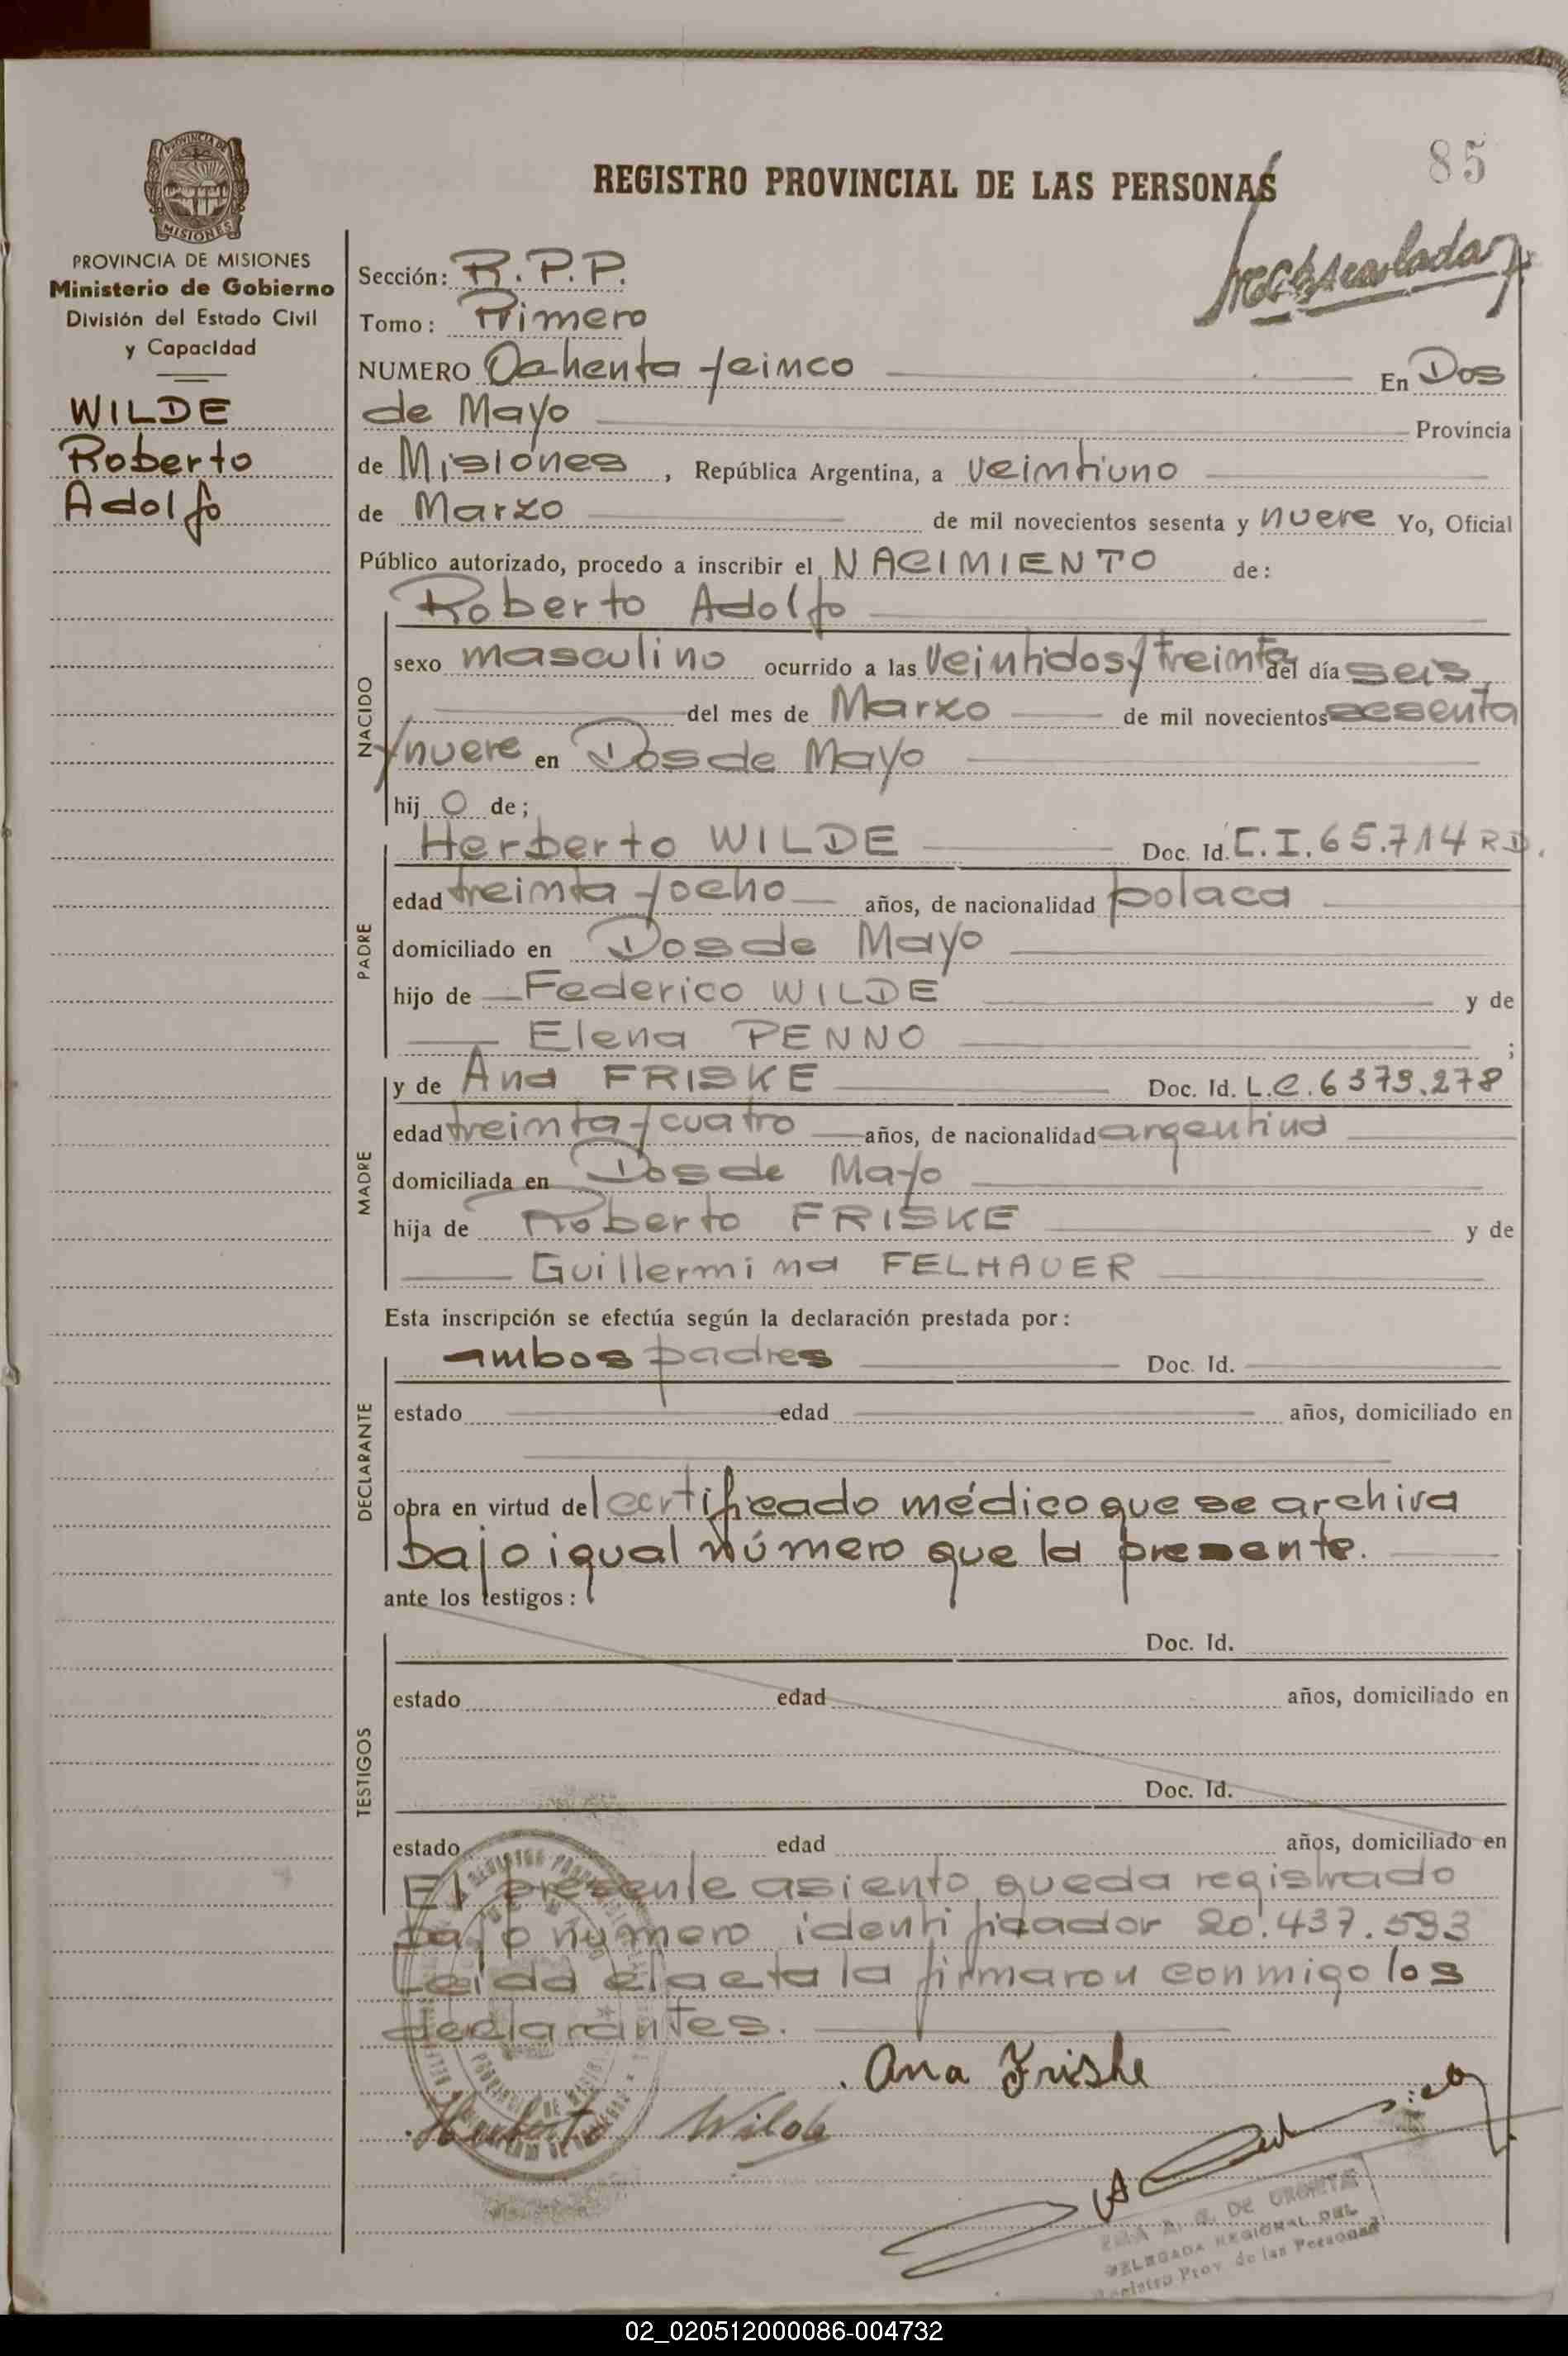 85
REGISTRO PROVINCIAL DE LAS PERSONAS
PROVINCIA DE
MISIONES
PROVINCIA DE MISIONES
Ministerio de Gobierno
División del Estado Civil
y Capacidad
WILDE
Roberto
Adolfo
Sección: R.P.P.
Tomo: Primero
NUMERO Ochenta y cinco En Dos
de Mayo Provincia
de Misiones, República Argentina, a veintiuno
de Marzo de mil novecientos sesenta y nueve Yo, Oficial
Público autorizado, procedo a inscribir el NACIMIENTO de:
NACIDO
Roberto Adolfo
sexo masculino ocurrido a las veintidos y treinta del día seis
del mes de Marzo de mil novecientos sesenta
y nueve en Dos de Mayo
hijo de;
PADRE
Herberto WILDE Doc. Id. C.I. 65.714 R.D.
edad treinta y ocho años, de nacionalidad polaca
domiciliado en Dos de Mayo
hijo de Federico WILDE y de
Elena PENNO ;
MADRE
y de Ana FRISKE Doc. Id. L.C. 6379.278
edad treinta y cuatro años, de nacionalidad argentina
domiciliada en Dos de Mayo
hija de Roberto FRISKE y de
Guillermina FELHAUER
Esta inscripción se efectúa según la declaración prestada por:
DECLARANTE
ambos padres Doc. Id.
estado edad años, domiciliado en
obra en virtud del certificado médico que se archiva
bajo igual número que la presente.
ante los testigos:
TESTIGOS
Doc. Id.
estado edad años, domiciliado en
Doc. Id.
estado edad años, domiciliado en
El presente asiento queda registrado
bajo número identificador 20.437.593
Leida el acta la firmaron conmigo los
declarantes.
Ana Friske
Herberto Wilde
DE URRUTIA
DELEGADA REGIONAL DEL
Registro Prov. de las Personas
02_020512000086-004732